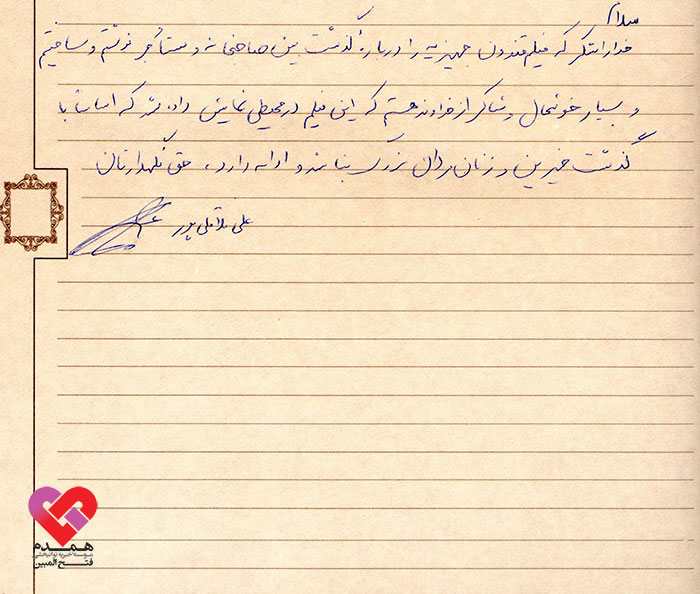 سلام
خدا را شکر که فیلم قندون جهیزیه را درباره گذشت بین صاحبخانه و مستأجر نوشتم و ساختیم
و بسیار خوشحال و شاکر از خداوند هستم که این فیلم در محیطی نمایش داده شد که اساساً با
گذشت خیرین و زنان مردان بزرگ بنا شد و ادامه دارد، حق نگهدارتان
علی ملاقلی پور
همدم
موسسه خیریه توانبخشی
فتح المبین